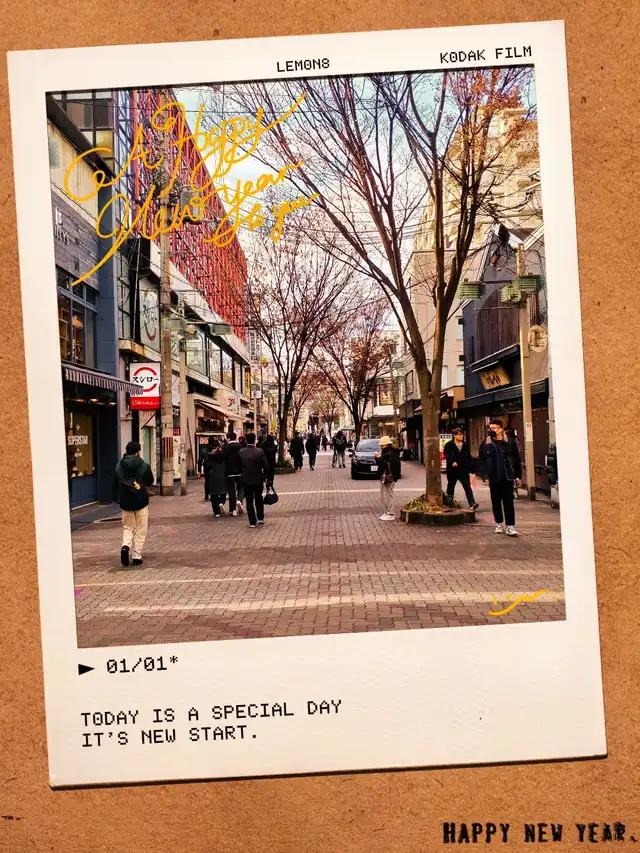 LEM0N8
K0DAK FILM
A Happy
New year
to you
スシロー
SUPERSTAR
► 01/01*
T0DAY IS A SPECIAL DAY
IT'S NEW START.
HAPPY NEW YEAR.